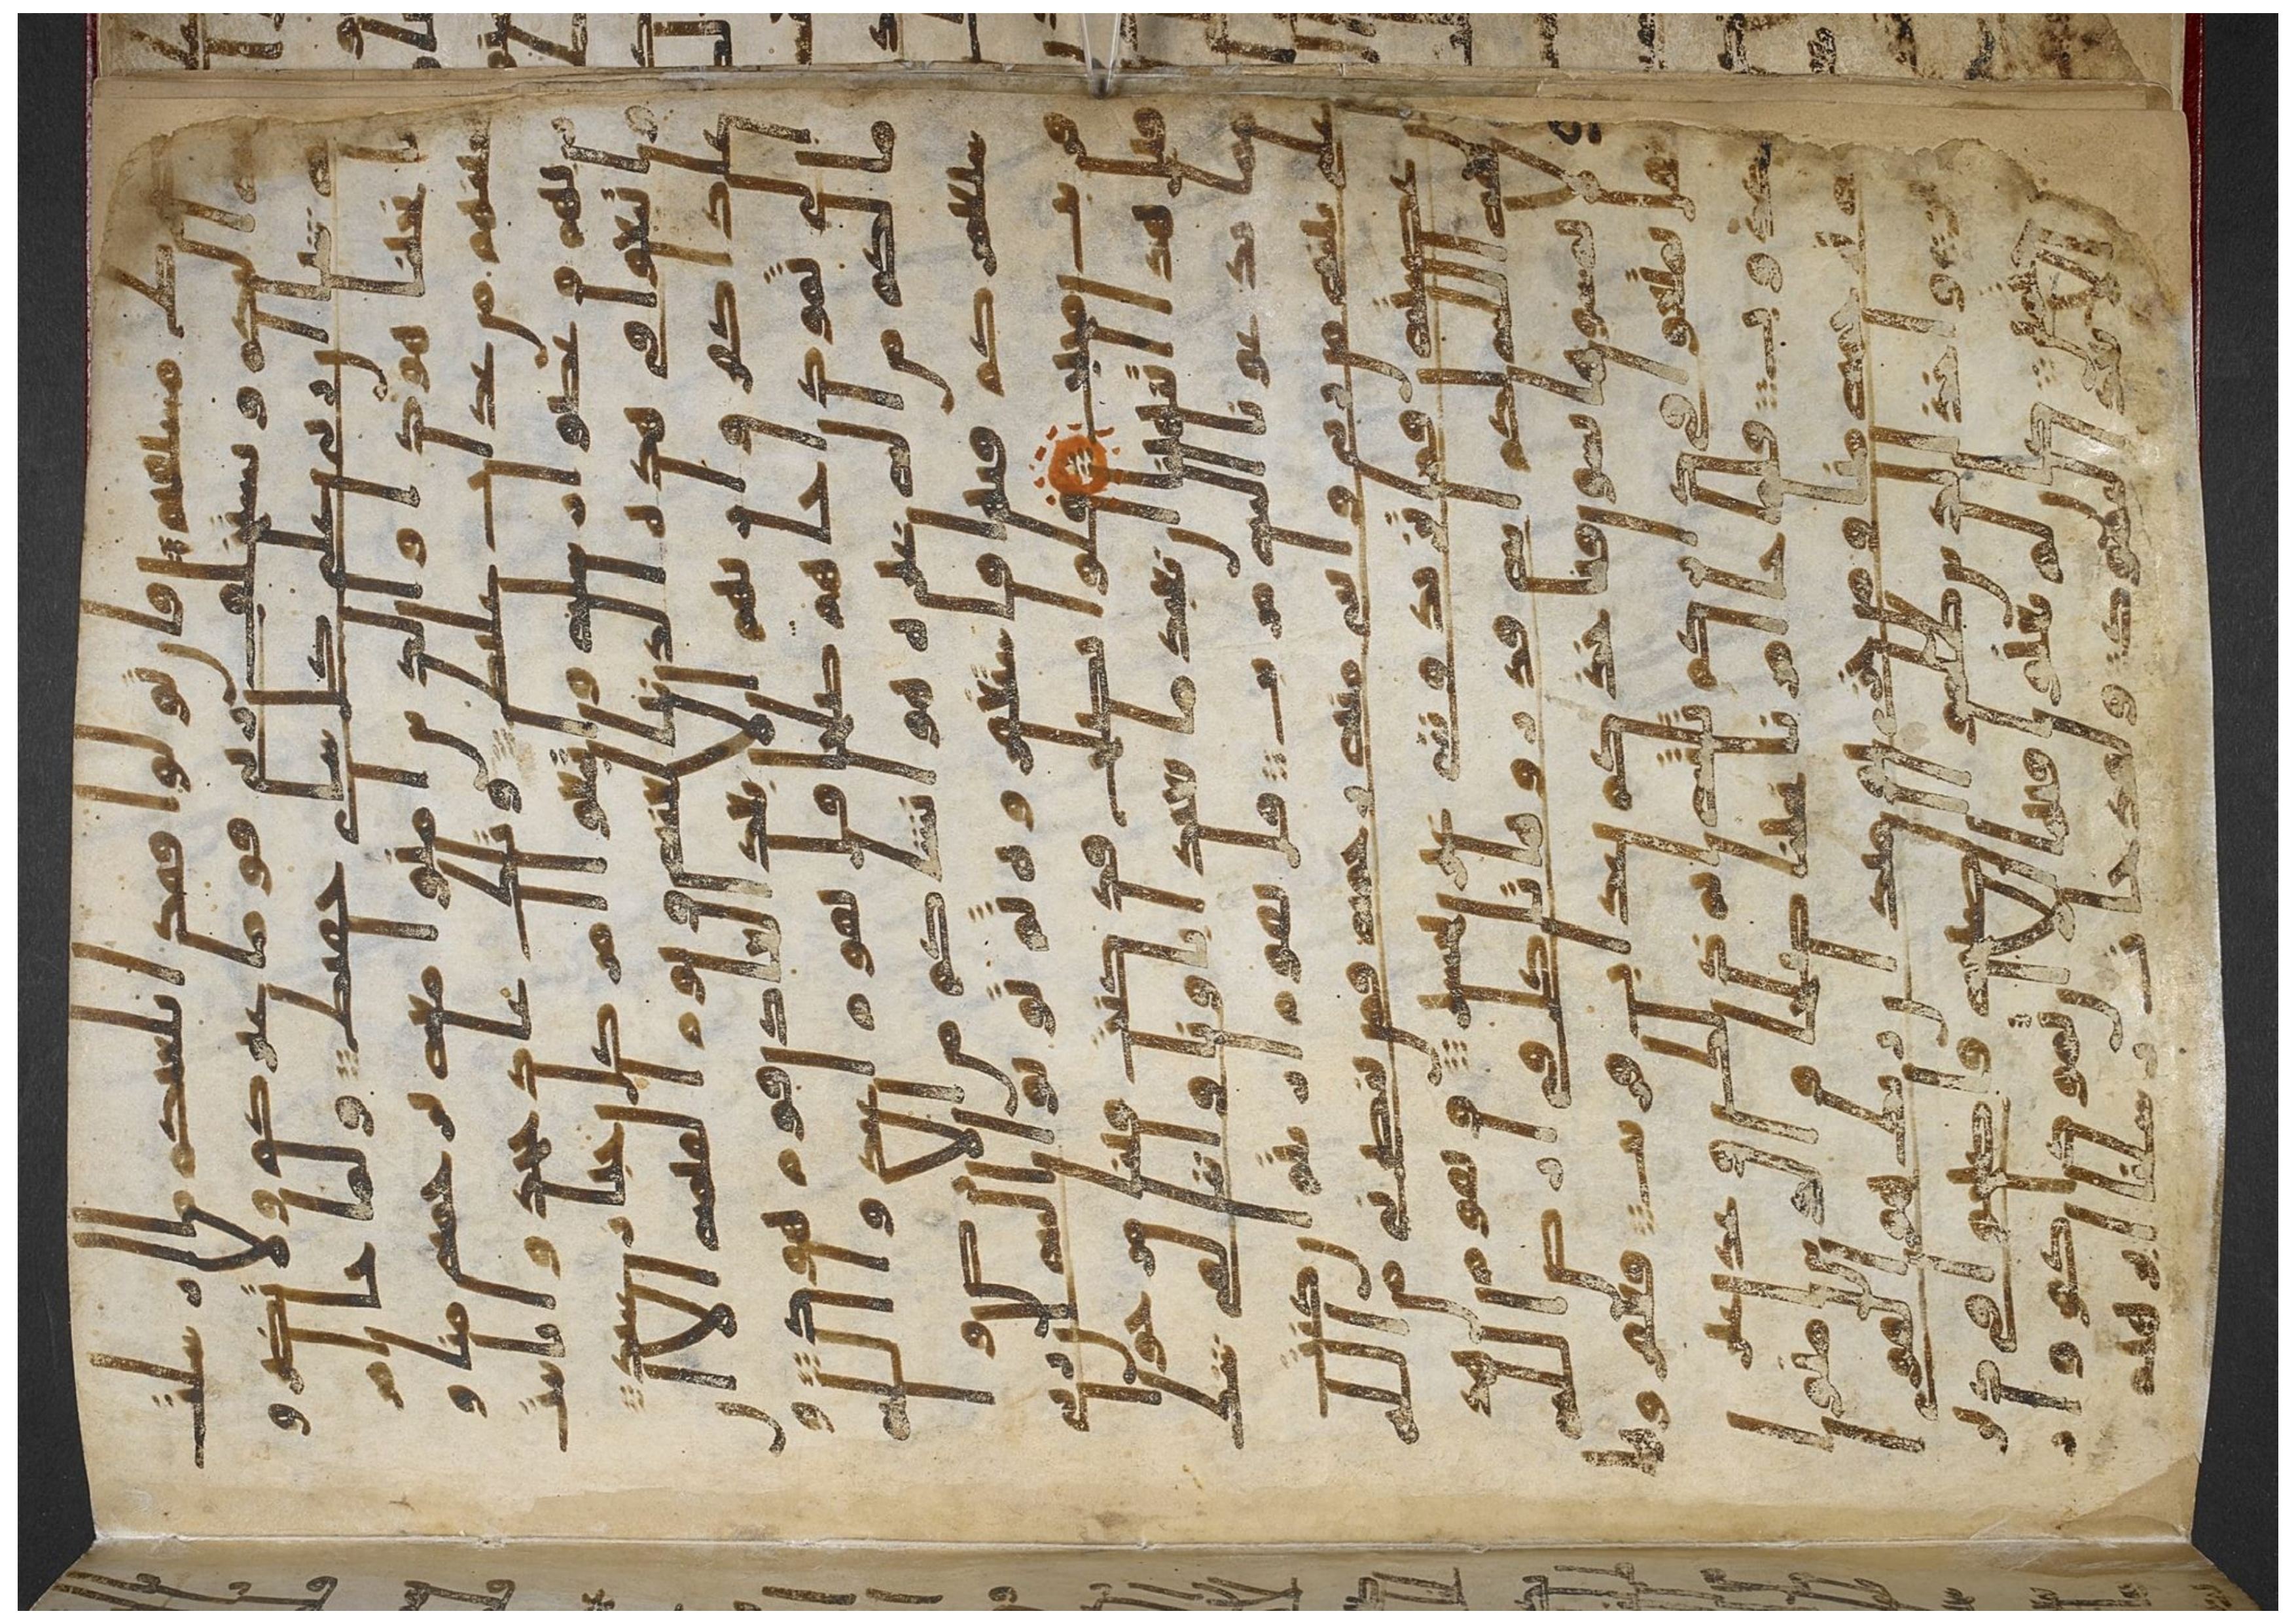 ط مستقيم فان تولوا فقد ابلغتكم ما ارسلت
به اليكم ويستخلف ربي قوما غيركم ولا تضرو
نه شيا ان ربي على كل شي حفيظ ولما جا امر
نا نجينا هودا والذين امنوا معه برحمة منا و
نجينهم من عذاب غليظ وتلك عاد جحدوا بايت
ربهم وعصوا رسله واتبعوا امر كل جبار عنيد
واتبعوا في هذه الدنيا لعنة ويوم القيمة الا ا
ن عادا كفروا ربهم الا بعدا لعاد قوم هود و
الى ثمود اخاهم صلحا قال يقوم اعبدوا الله
ما لكم من اله غيره هو انشاكم من الارض و
استعمركم فيها فاستغفروه ثم توبوا اليه ان ربي
قريب مجيب قالوا يصلح قد كنت فينا مرجوا
قبل هذا اتنهنا ان نعبد ما يعبد اباونا واننا لفي شك
مما تدعونا اليه مريب قل يقوم اريتم ان كنت
على بينة من ربي واتني منه رحمة فمن ينصرني من الله
ان عصيته فما تزيدونني غير تخسير ويقوم هذه
ناقة الله لكم اية فذروها تاكل في ارض الله
ولا تمسوها بسو فياخذكم عذاب قريب فعقروها
فقل تمتعوا في داركم ثلثة ايام ذلك وعد
غير مكذوب فلما جا امرنا نجينا صلحا والذين امنوا
معه برحمة منا ومن خزي يومئذ ان ربك هو القوي ا
لعزيز واخذ الذين ظلموا الصيحة فاصبحوا في د
يرهم جثمين كان لم يغنوا فيها الا ان ثمودا كفروا ر
بهم الا بعدا لثمود ولقد جات رسلنا ابرهيم